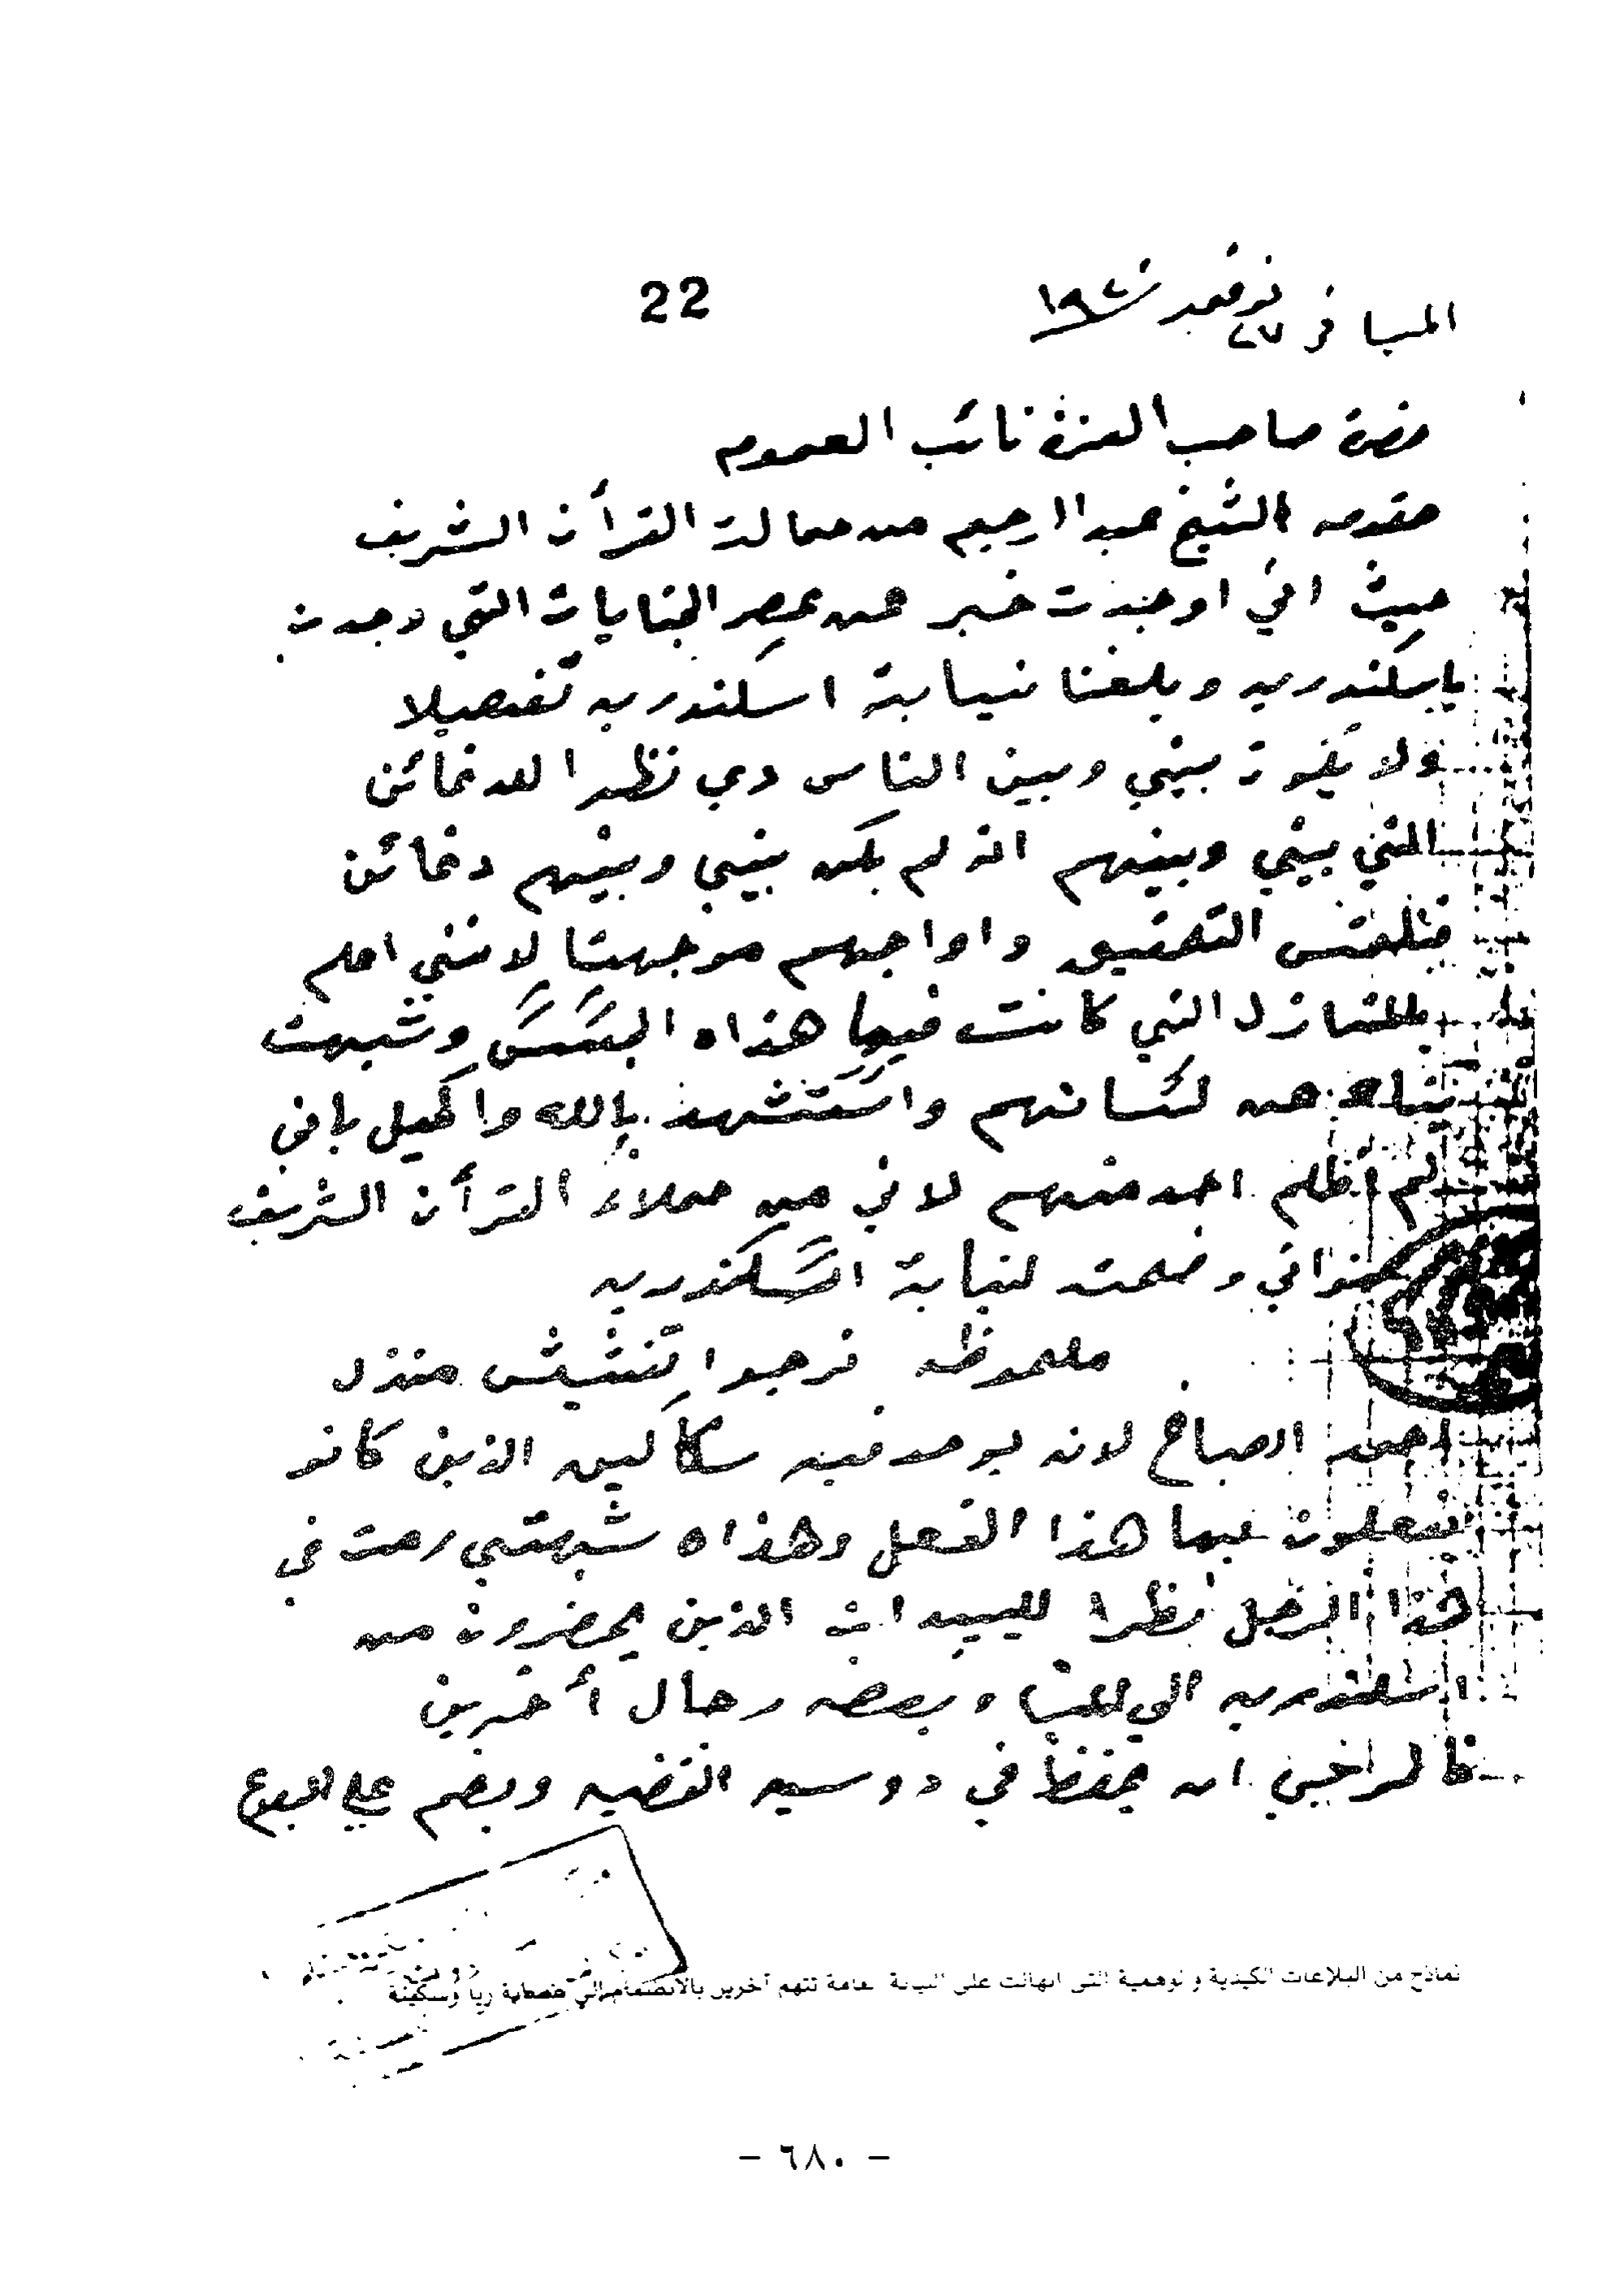 المنيا في ٢٧ نوفمبر ١٩٢٠
22
حضرة صاحب العزة نائب العموم
مقدمه الشيخ عبد الرحيم من حمالت القرأن الشريف
حيث اني اوجدت خبر عن بعض الجنايات التي وجدت
باسكندريه وبلغنا نيابة اسكندريه تفصيلا
ولا يفوت بيني وبين الناس دي نظرا للدغائن
التي بيني وبينهم ان لم يكن بيني وبينهم دغائن
فنلتمس التحقيق واواجههم موجهتا لانني اعلم
بالمنازل التي كانت فيها هذاه وشبهت
عن لسانهم واستشهد بالله والجيل باني
لم أظلم احد منهم لاني من حملاء القرأن الشريف
عنواني وضحت لنيابة اسكندريه
ملحوظه نرجوا تفتيش منزل
احمد الصباح لانه يوجد فيه سكاكين الذين كانو
يفعلون بها هذا الفعل وهذاه شبهتي رحت في
هذا الرجل نظرا للسيدات الذين يحضرون من
اسكندريه الي المنيا وبعض رجال أخرين
فالمراخي ان يحفظ في دوسيه القضيه ويضم علي
نماذج من البلاغات الكيدية والوهمية التى انهالت على النيابة العامة تتهم آخرين بالانضمام إلى عصابة ريا وسكينة
- ٦٨٠ -